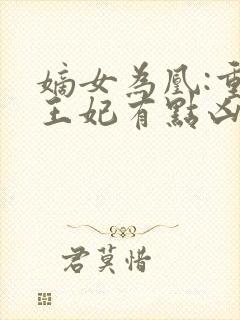 嫡女為凰:重
王妃有點凶
君莫惜